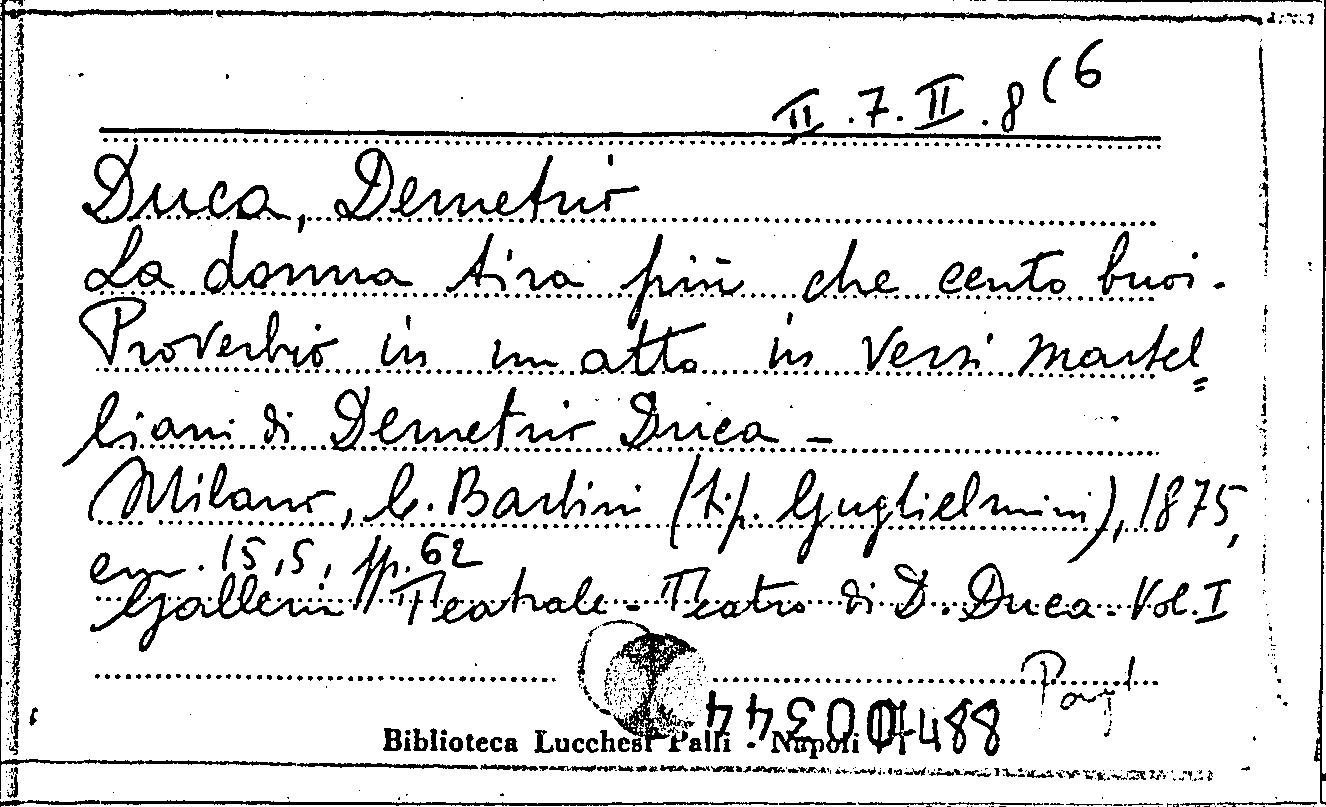 II.7.II.8(6
Duca, Demetrio
La donna tira più che cento buoi.
Proverbio in un atto in versi martel=
liani di Demetrio Duca -
Milano, C. Barbini (tip. Guglielmini), 1875,
cm. 15,5, pp. 62
Galleria Teatrale - Teatro di D. Duca - Vol. I
Biblioteca Lucchesi Palli - Napoli